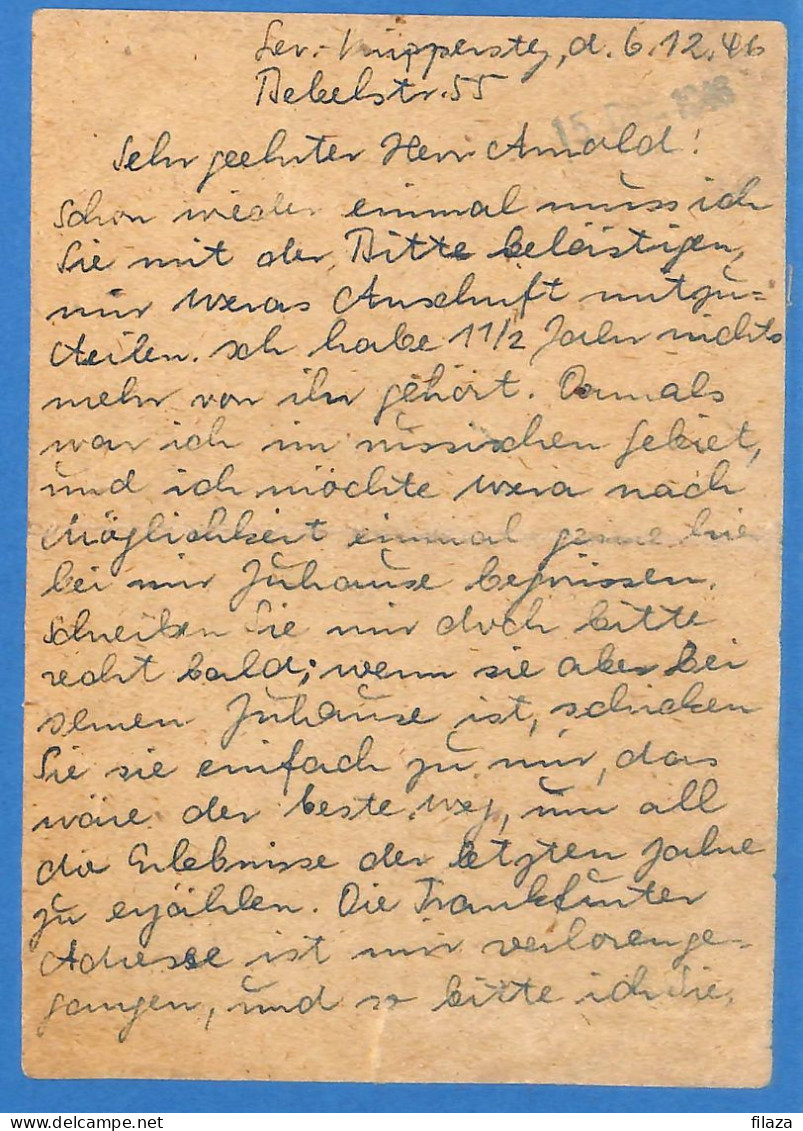 Lev.-Küppersteg, d. 6.12.46
Bebelstr. 55
15 1946
Sehr geehrter Herr Arnold!
Schon wieder einmal muss ich
Sie mit der Bitte belästigen,
mir Weras Anschrift mitzu=
teilen. Ich habe 1 1/2 Jahr nichts
mehr von ihr gehört. Damals
war ich im russischen Gebiet,
und ich möchte Wera nach
Möglichkeit einmal gerne hier
bei mir Zuhause begrüssen.
Schreiben Sie mir doch bitte
recht bald; wenn sie aber bei
Ihnen Zuhause ist, schicken
Sie sie einfach zu mir, das
wäre der beste Weg, um all
die Erlebnisse der letzten Jahre
zu erzählen. Die Frankfurter
Adresse ist mir verlorenge=
gangen, und so bitte ich Sie,
filaza